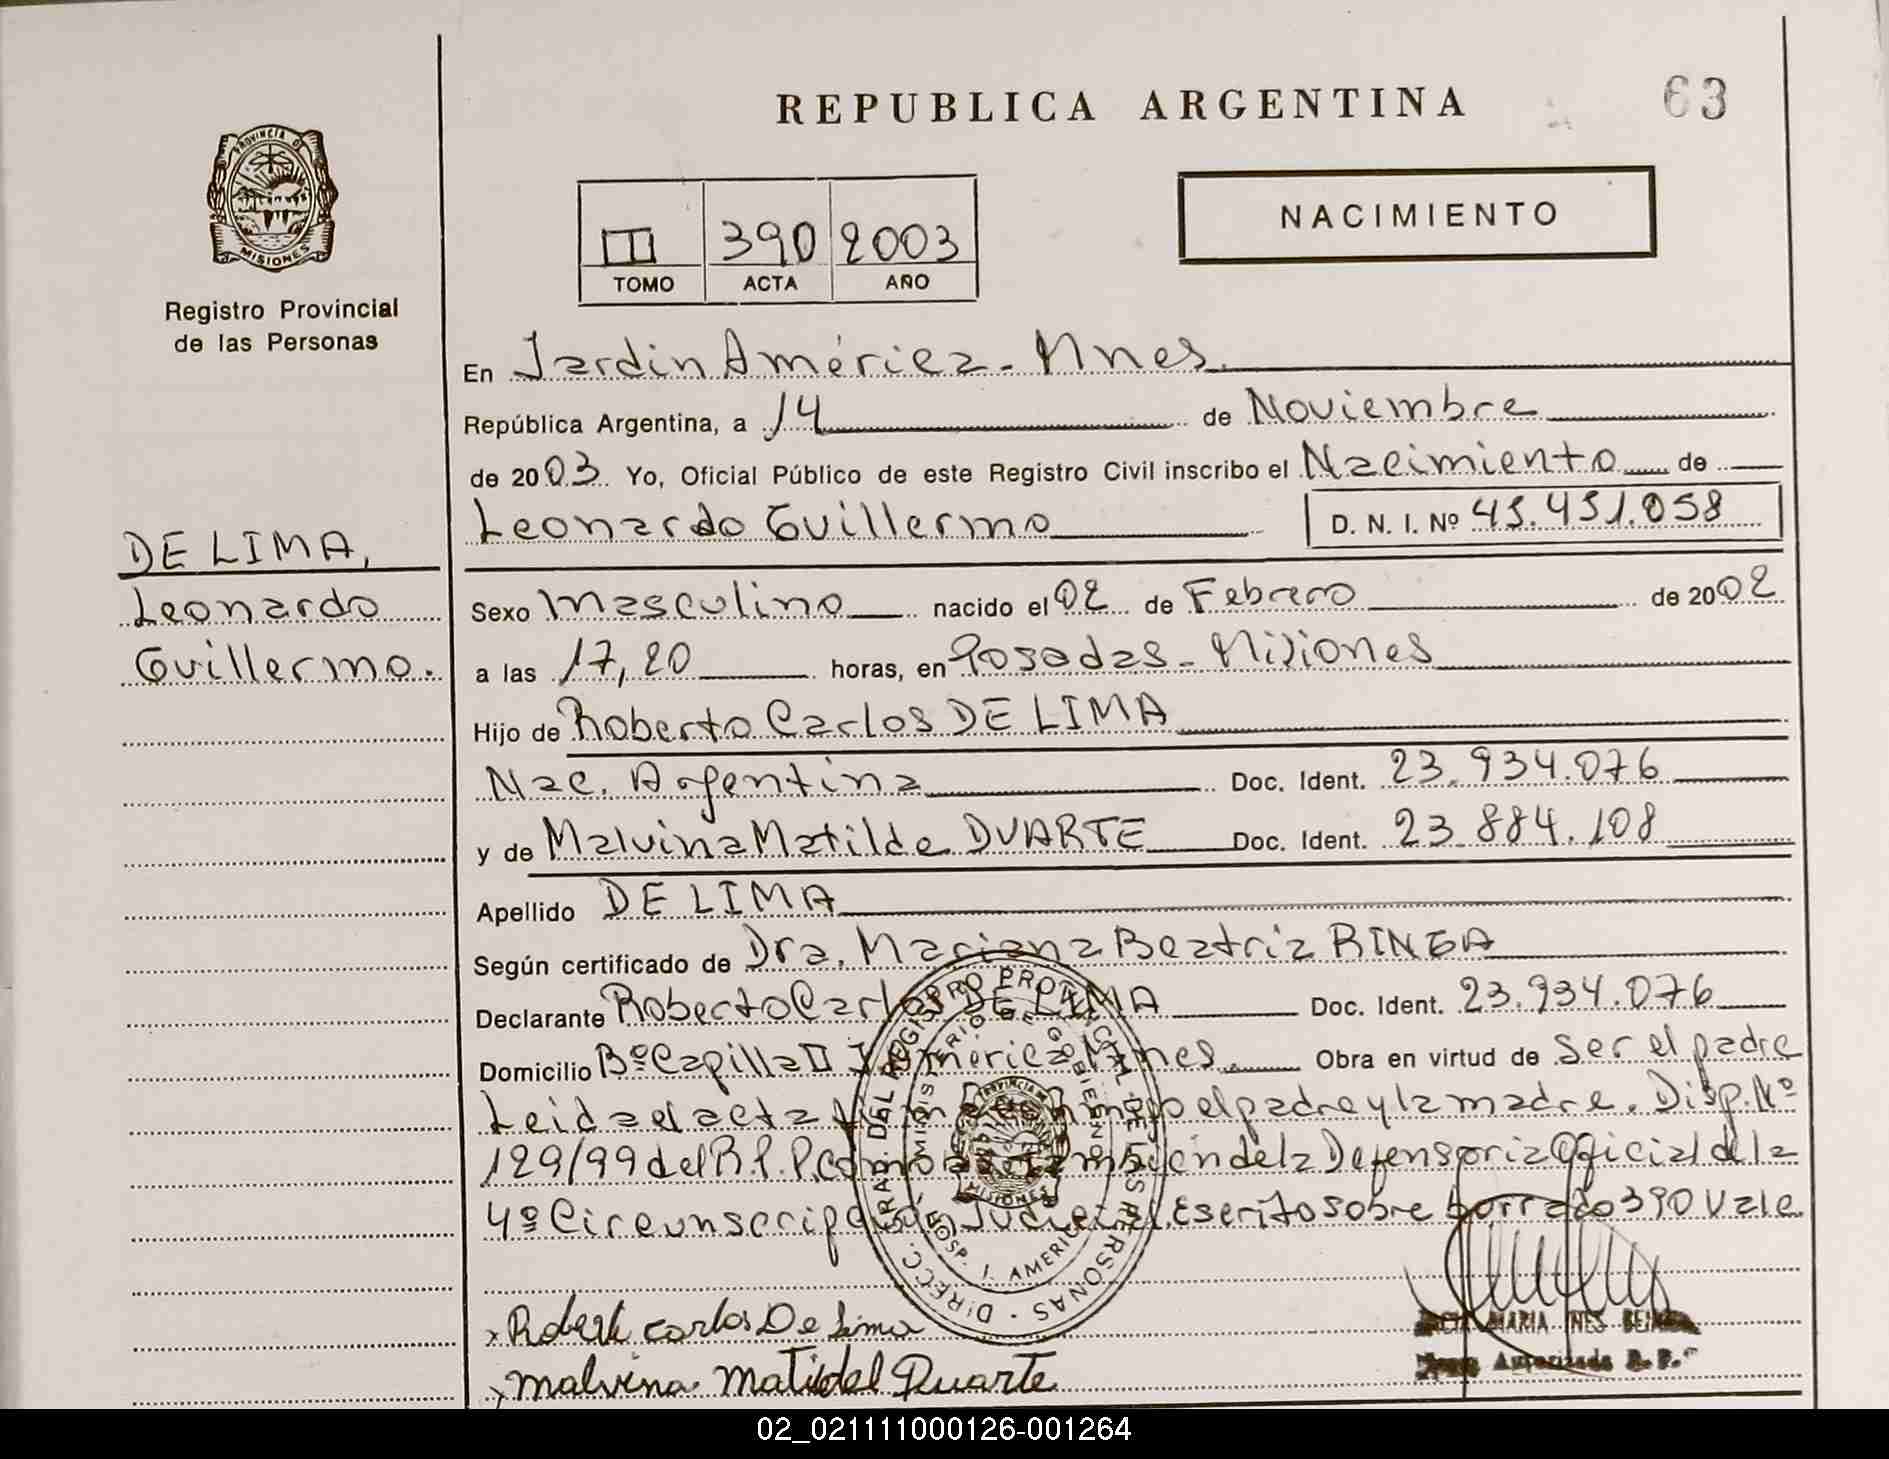 REPUBLICA ARGENTINA
63
PROVINCIA DE
MISIONES
Registro Provincial
de las Personas
NACIMIENTO
II 390 2003
TOMO ACTA AÑO
En Jardin América - Mnes.
República Argentina, a 14 de Noviembre
de 2003 Yo, Oficial Público de este Registro Civil inscribo el Nacimiento de
Leonardo Guillermo D. N. I. Nº 43.451.058
DE LIMA,
Leonardo
Guillermo.
Sexo Masculino nacido el 02 de Febrero de 2002
a las 17,20 horas, en Posadas - Misiones
Hijo de Roberto Carlos DE LIMA
Nac. Argentina Doc. Ident. 23.934.076
y de Malvina Matilde DUARTE Doc. Ident. 23.884.108
Apellido DE LIMA
Según certificado de Dra. Mariana Beatriz BINGA
Declarante Roberto Carlos DE LIMA Doc. Ident. 23.934.076
Domicilio Bº Capilla II J. America Mnes. Obra en virtud de ser el padre
Leida el acta el padre y la madre. Disp. Nº
129/99 del R.P.P. de la Defensoria Oficial de la
4º Circunscripción Judicial. Escrito sobre borrado 390 Vale.
DIRECC. GRAL. DEL REGISTRO PROVINCIAL DE LAS PERSONAS
MINISTERIO DE GOBIERNO
HOSP. J. AMERICA
PROVINCIA DE
MISIONES
Robert carlos De Lima
malvina. Matidel Duarte
MARIA INES
Autorizada R. P.
02_021111000126-001264